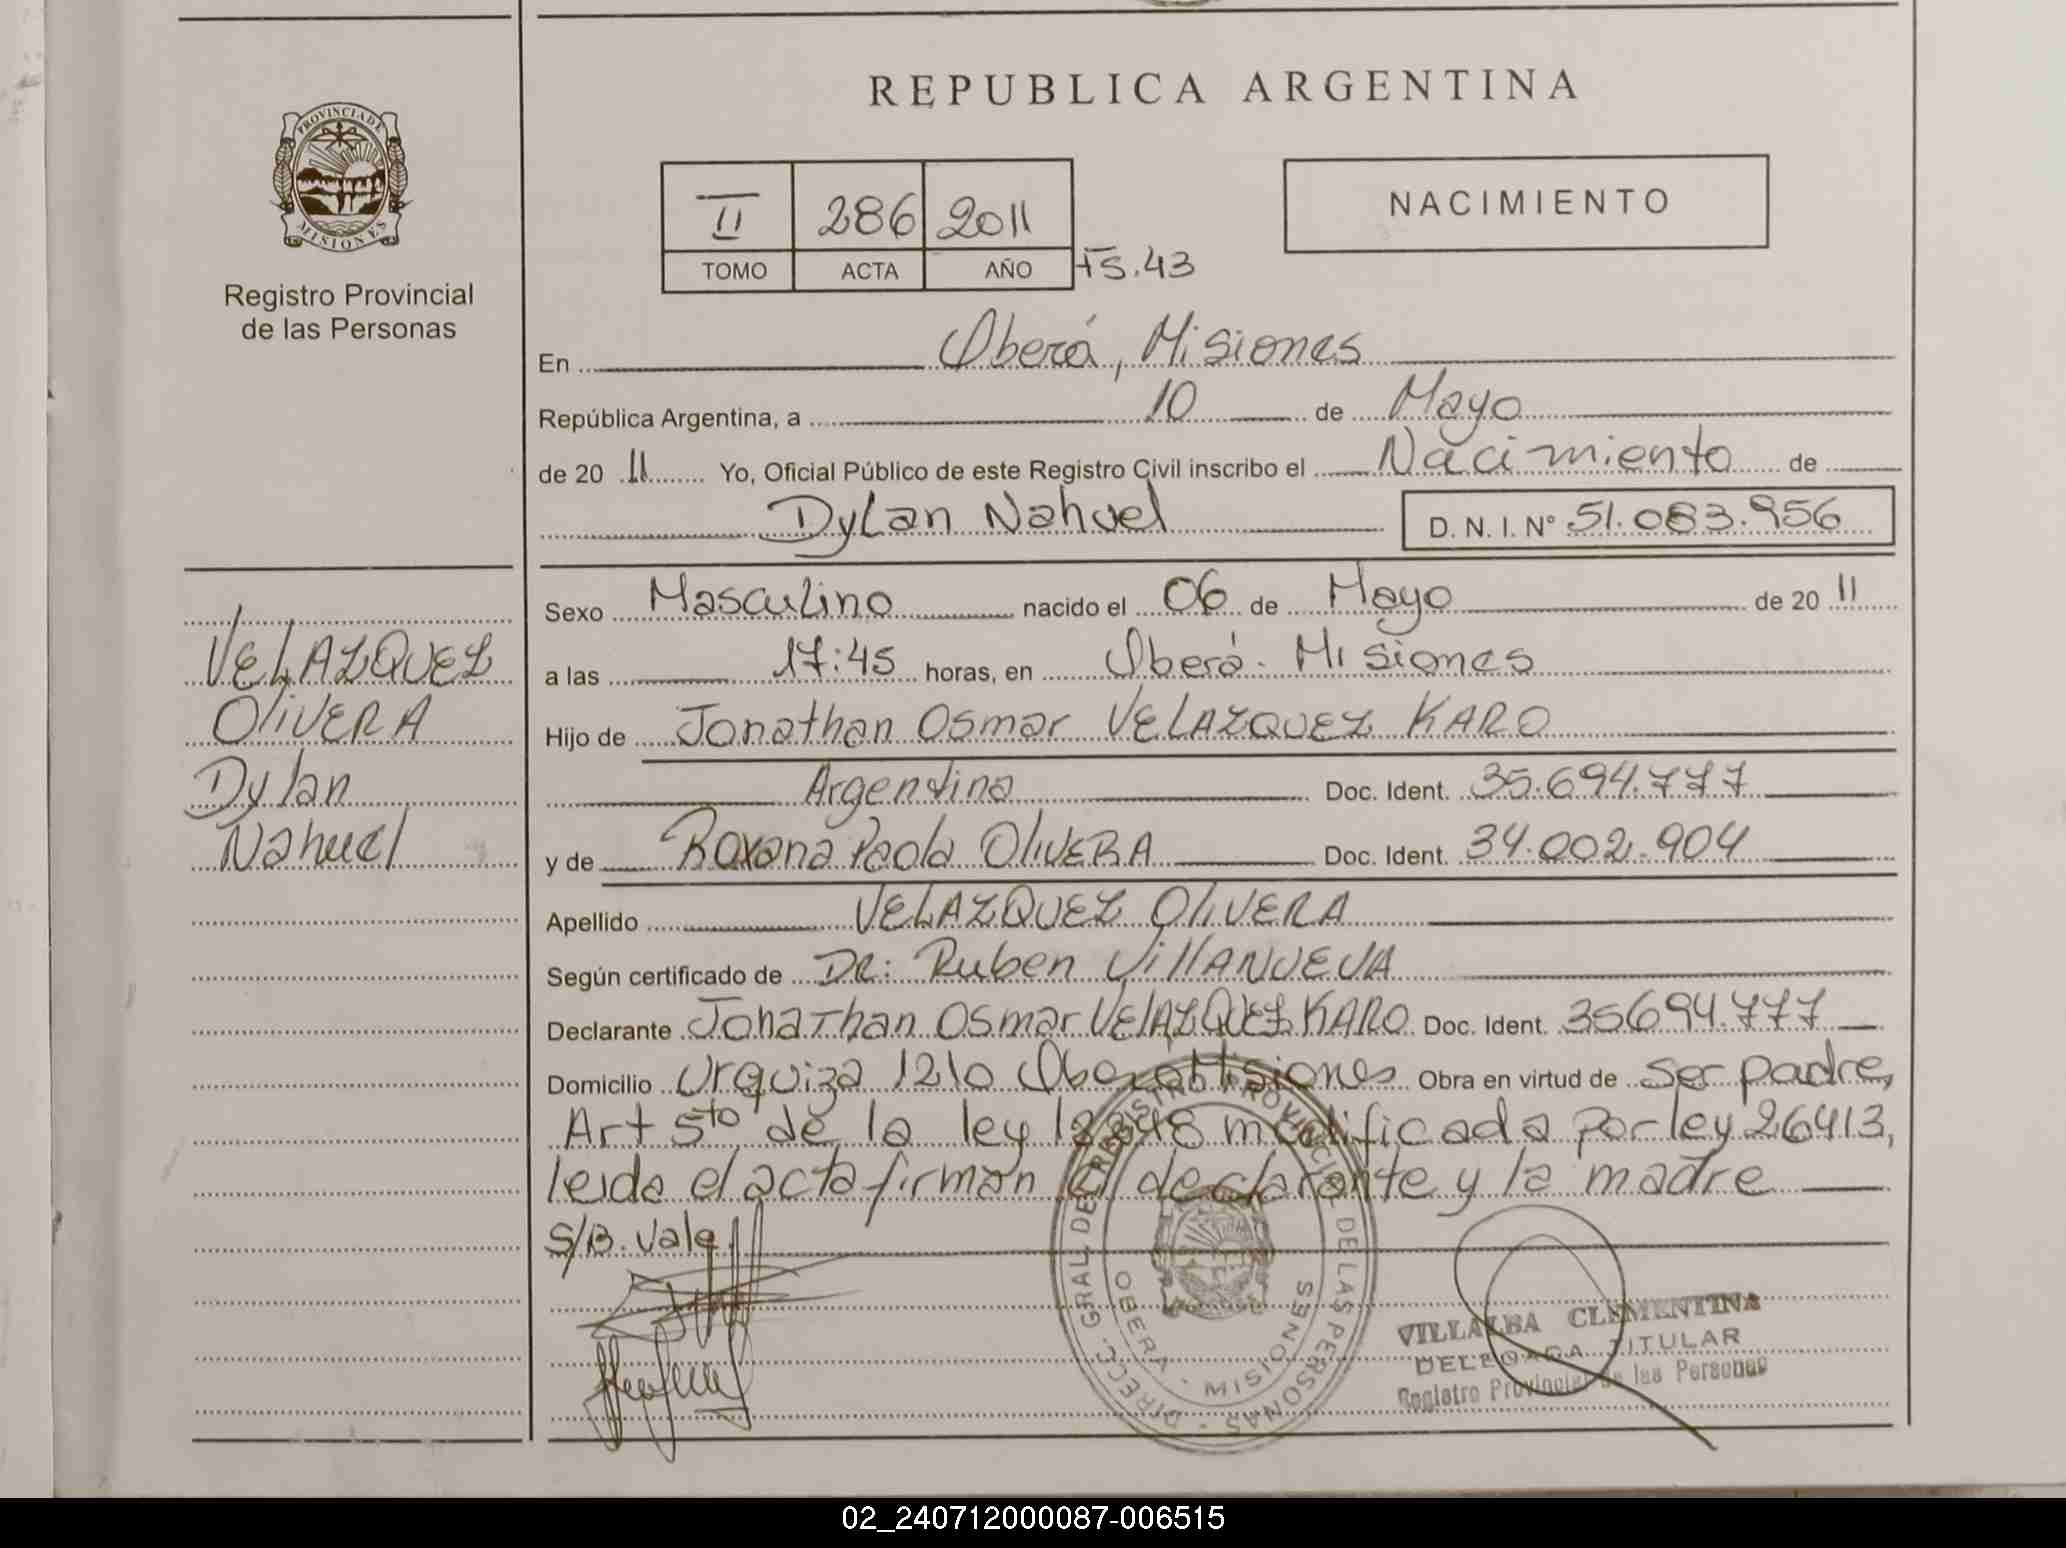 REPUBLICA ARGENTINA
PROVINCIA DE
MISIONES
Registro Provincial
de las Personas
NACIMIENTO
II 286 2011
TOMO ACTA AÑO Fs. 43
En Oberá, Misiones
República Argentina, a 10 de Mayo
de 20 11 Yo, Oficial Público de este Registro Civil inscribo el Nacimiento de
Dylan Nahuel D. N. I. N° 51.083.956
VELAZQUEZ
OliVERA
Dylan
Nahuel
Sexo Masculino nacido el 06 de Mayo de 20 11
a las 17:45 horas, en Oberá. Misiones
Hijo de Jonathan Osmar VELAZQUEZ KARO
Argentina Doc. Ident. 35.694.777
y de Roxana Paola OliVERA Doc. Ident. 34.002.904
Apellido VELAZQUEZ OliVERA
Según certificado de Dr: Ruben VillANUEVA
Declarante Jonathan Osmar VElAZQUEZ KARO Doc. Ident. 35694.777
Domicilio Urquiza 1210 Oberá Misiones Obra en virtud de ser padre,
Art 5to de la ley 18248 modificada por ley 26413,
leida el acta firman el declarante y la madre
S/B. Vale
DIRECC. GRAL. DEL REGISTRO PROVINCIAL DE LAS PERSONAS
OBERA - MISIONES
VILLALBA CLEMENTINA
DELEGADA TITULAR
Registro Provincial de las Personas
02_240712000087-006515